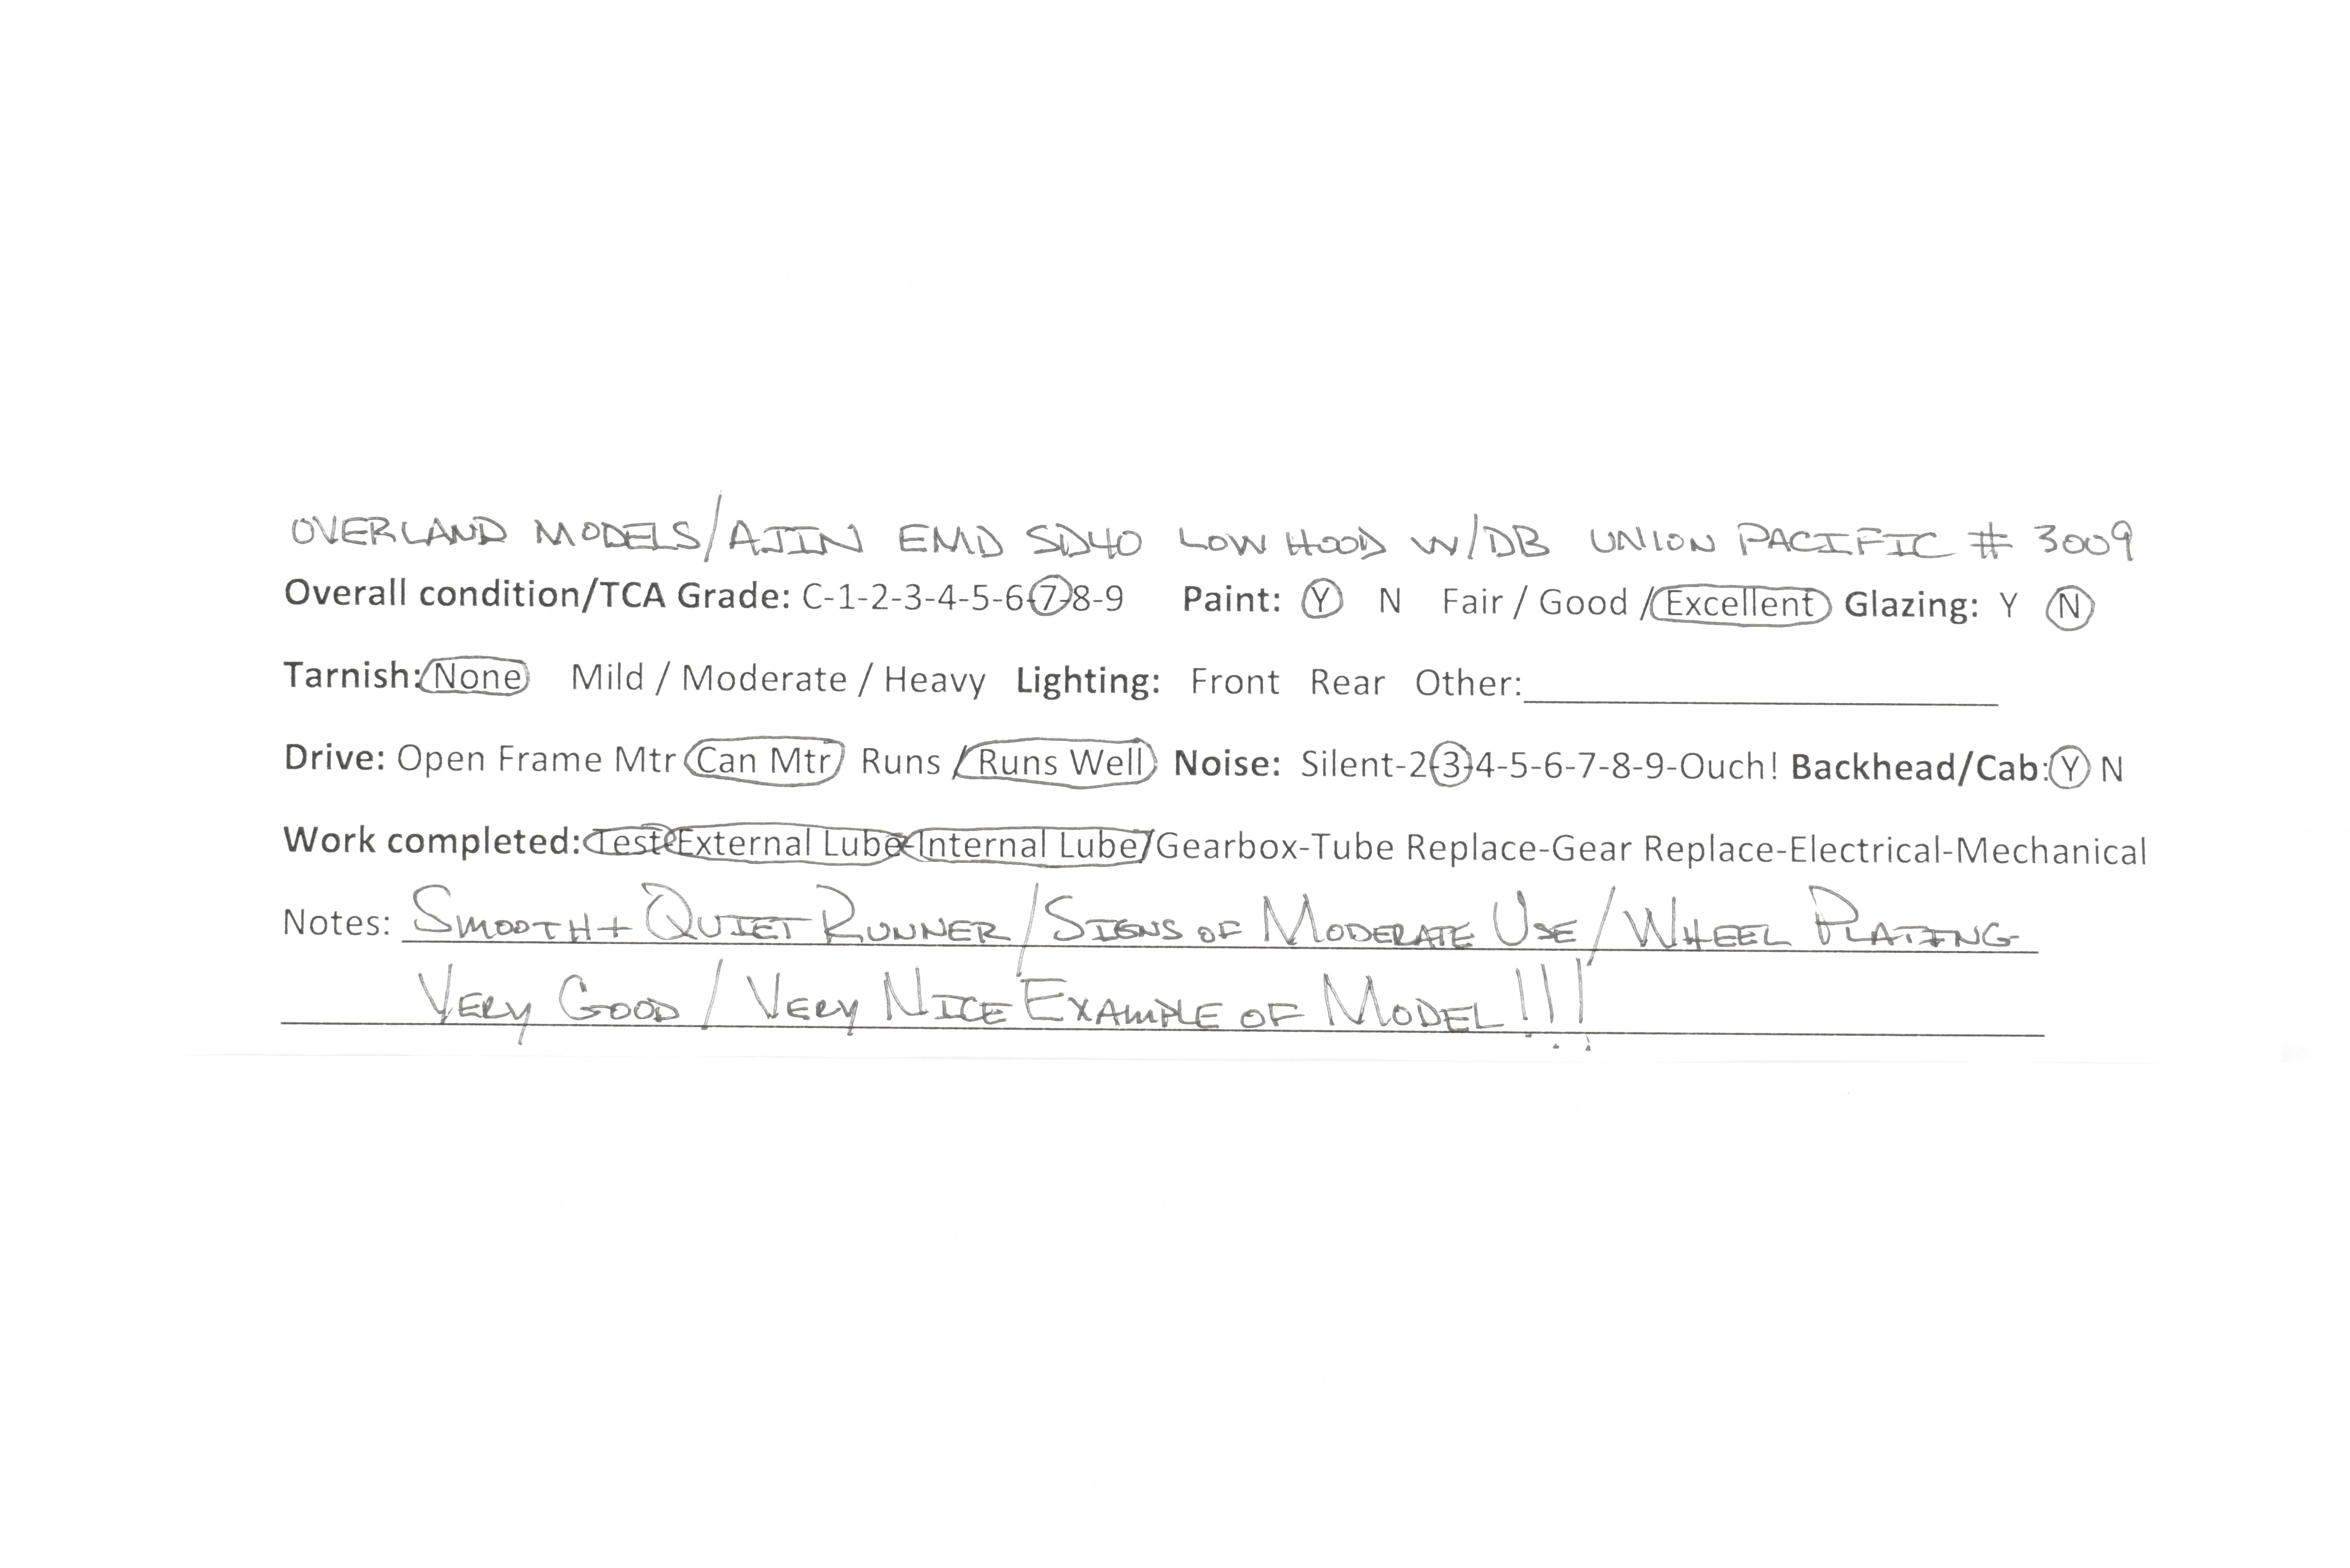 OVERLAND MODELS/AJIN EMD SD40 LOW HOOD W/DB UNION PACIFIC # 3009
Overall condition/TCA Grade: C-1-2-3-4-5-6-7-8-9 Paint: Y N Fair / Good / Excellent Glazing: Y N
Tarnish: None Mild / Moderate / Heavy Lighting: Front Rear Other:
Drive: Open Frame Mtr Can Mtr Runs / Runs Well Noise: Silent-2-3-4-5-6-7-8-9-Ouch! Backhead/Cab: Y N
Work completed: Test-External Lube-Internal Lube/Gearbox-Tube Replace-Gear Replace-Electrical-Mechanical
Notes: SMOOTH + QUIET RUNNER/SIGNS OF MODERATE USE/WHEEL PLATING
VERY GOOD/VERY NICE EXAMPLE OF MODEL!!!